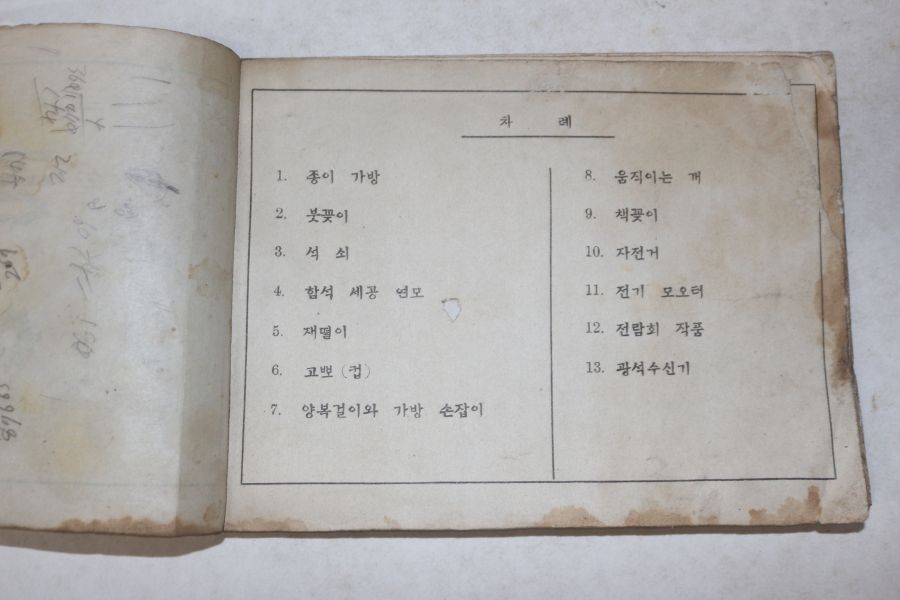 차 례
1. 종이 가방
2. 붓꽂이
3. 석 쇠
4. 함석 세공 연모
5. 재떨이
6. 고뿌 (컵)
7. 양복걸이와 가방 손잡이
8. 움직이는 개
9. 책꽂이
10. 자전거
11. 전기 모오터
12. 전람회 작품
13. 광석수신기